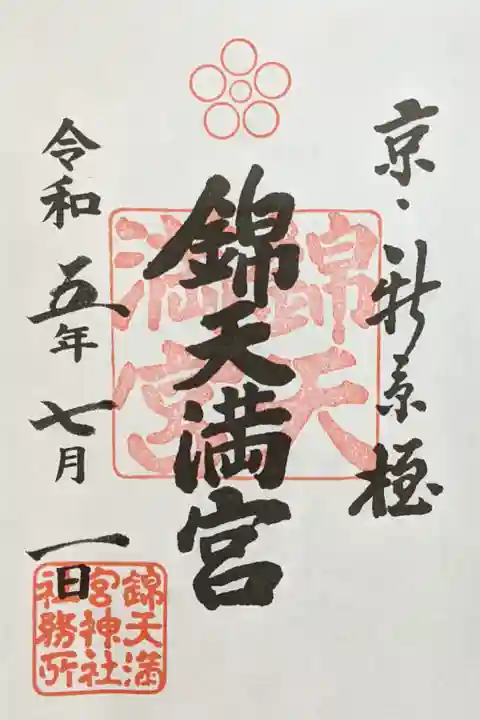 京・新京極
錦天満宮
錦天
満宮
令和五年七月一日
錦天満
宮神社
社務所